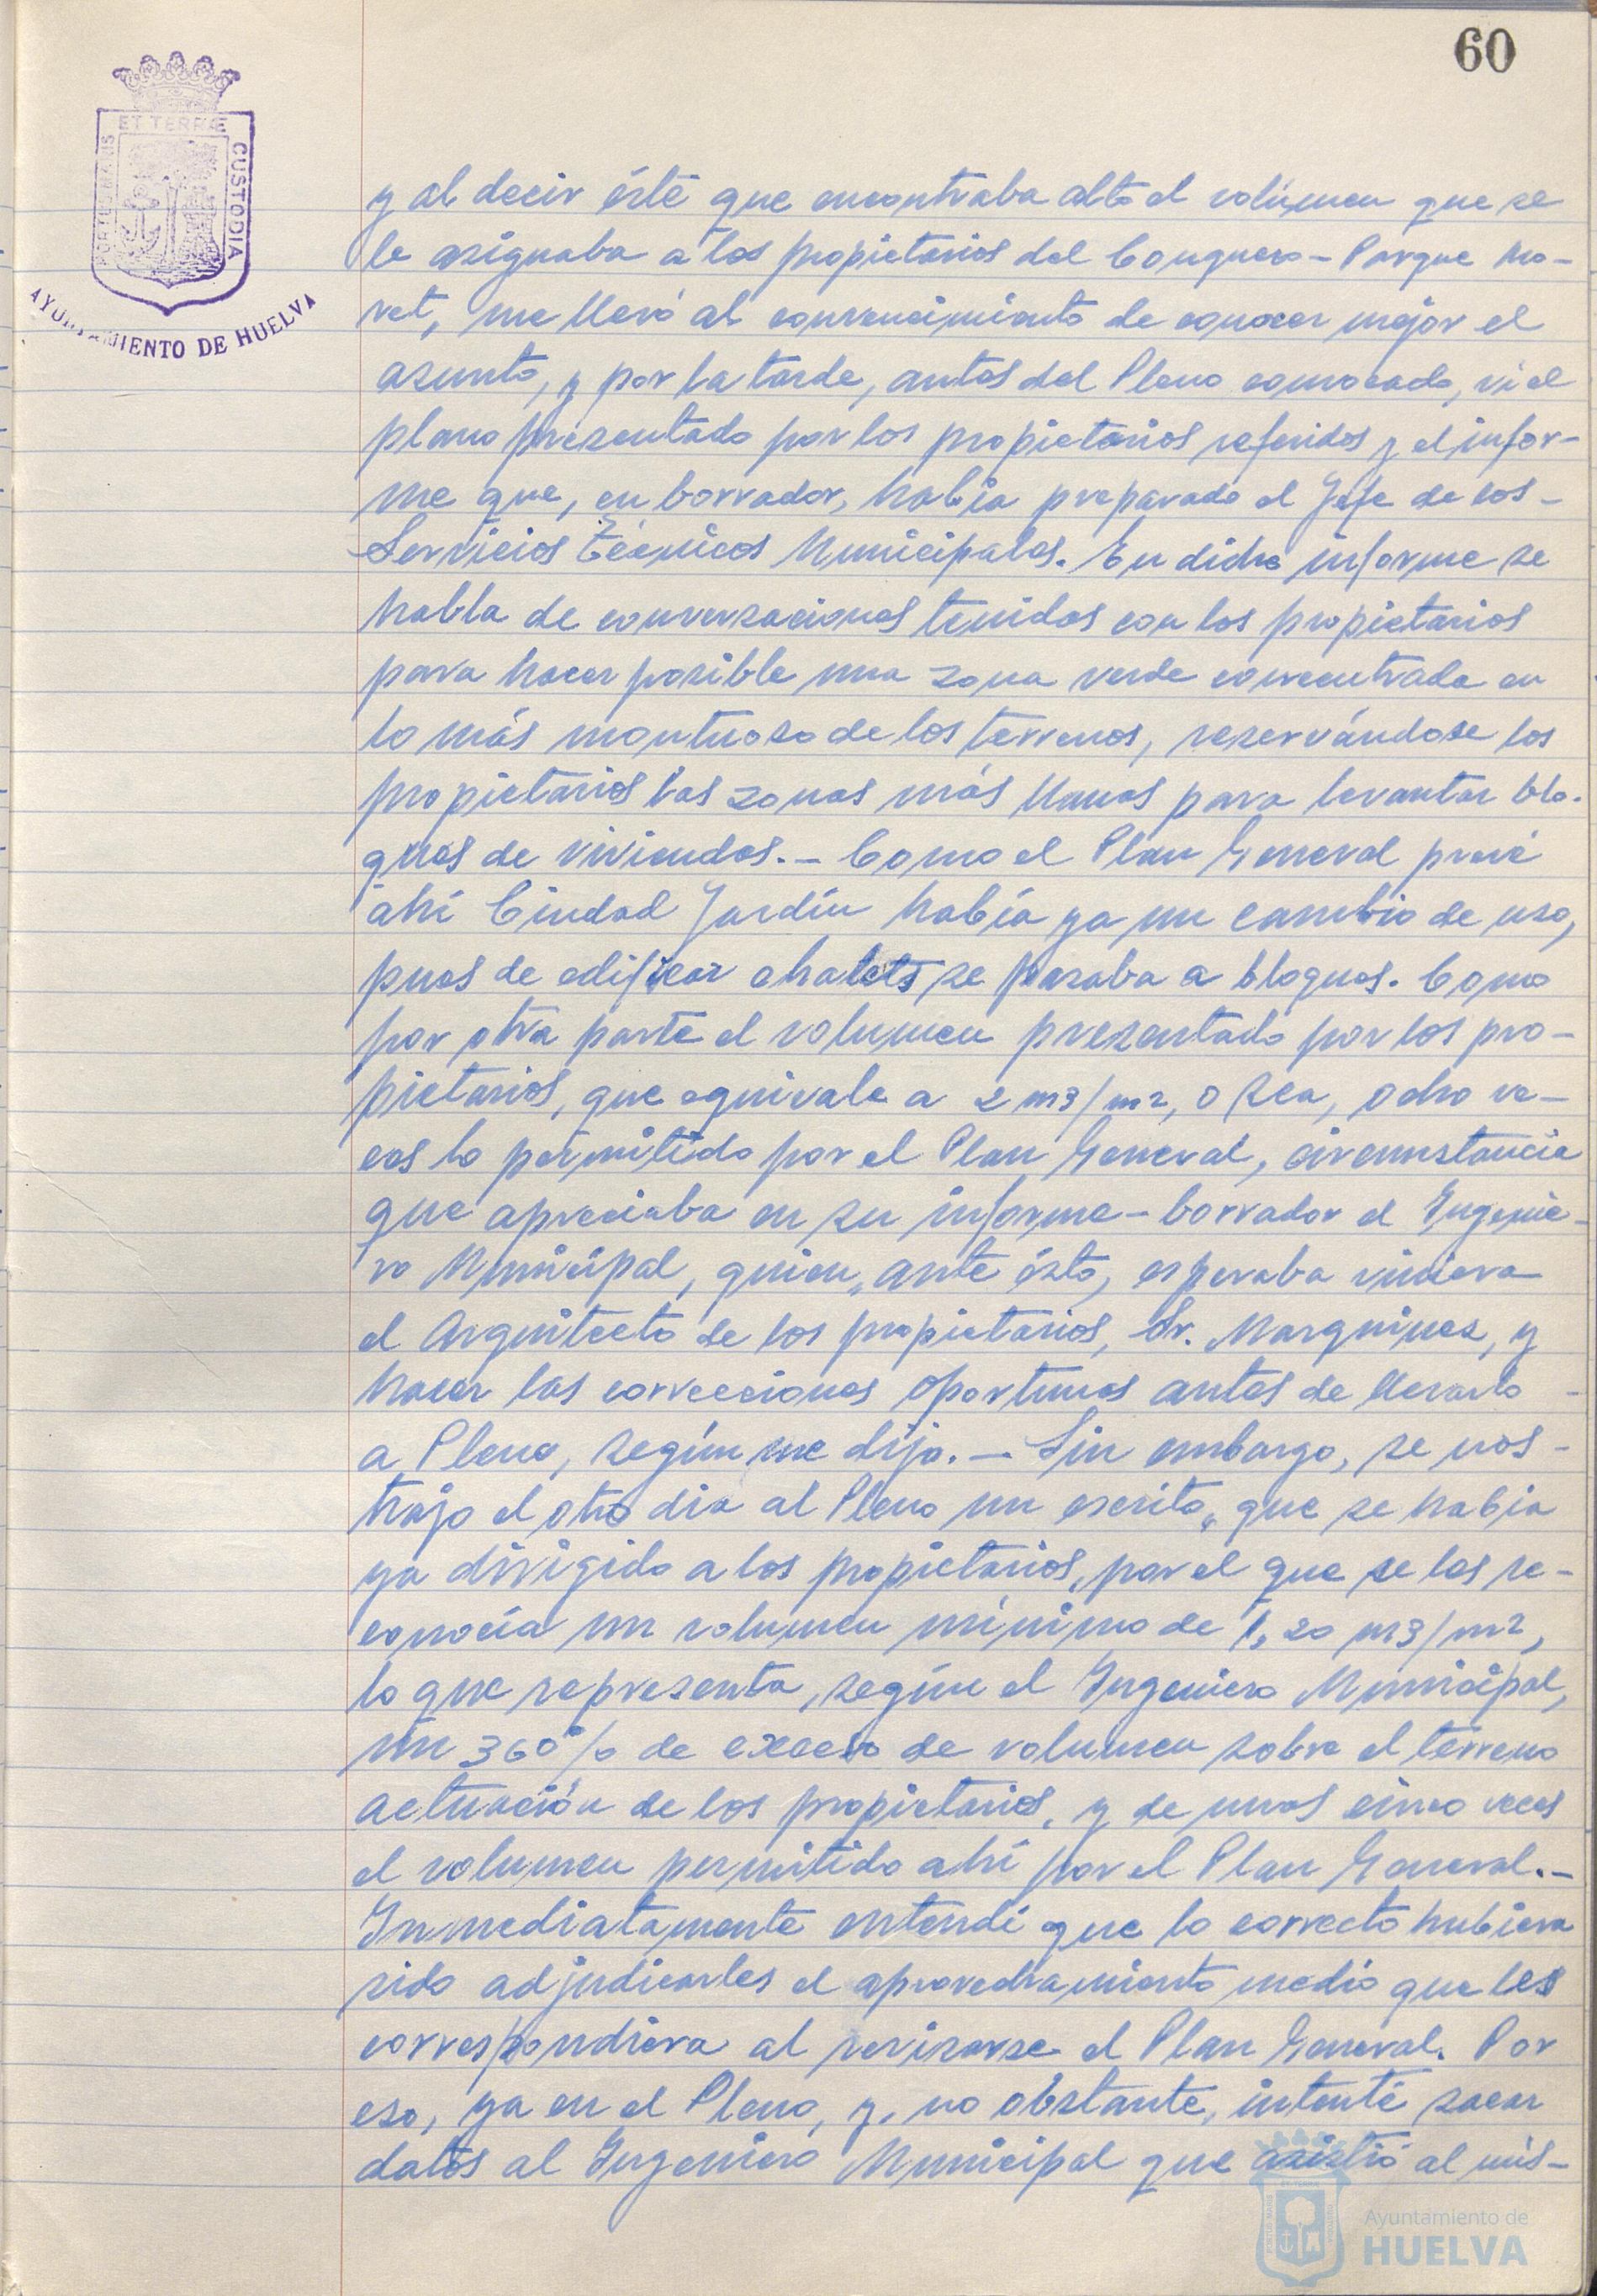 60
ET TERRÆ
PORTUS MARIS
CUSTODIA
AYUNTAMIENTO DE HUELVA
y al decir éste que encontraba alto el volúmen que se
le asignaba a los propietarios del Conquero - Parque Mo-
ret, me llevó al convencimiento de conocer mejor el
asunto, y por la tarde, antes del Pleno convocado, ví el
plano presentado por los propietarios referidos y el infor-
me que, en borrador, había preparado el Jefe de los-
Servicios Técnicos Municipales. En dicho informe se
habla de conversaciones tenidas con los propietarios
para hacer posible una zona verde concentrada en
lo más montuoso de los terrenos, reservándose los
propietarios las zonas más llanas para levantar blo-
ques de viviendas. - Como el Plan General prevé
ahí Ciudad Jardín había ya un cambio de uso,
pues de edificar chalets se pasaba a bloques. Como
por otra parte el volumen presentado por los pro-
pietarios, que equivale a 2 m3/m2, o sea, ocho ve-
ces lo permitido por el Plan General, circunstancia
que apreciaba en su informe - borrador el Ingenie-
ro Municipal, quien, ante ésto, esperaba viniera
el Arquitecto de los propietarios, Sr. Marquínez, y
hacer las correcciones oportunas antes de llevarlo -
a Pleno, según me dijo. - Sin embargo, se nos -
trajo el otro día al Pleno un escrito, que se había
ya dirigido a los propietarios, por el que se les re-
conocía un volumen mínimo de 1,20 m3/m2,
lo que representa, según el Ingeniero Municipal,
un 360% de exceso de volumen sobre el terreno
actuación de los propietarios, y de unas cinco veces
el volumen permitido ahí por el Plan General. -
Inmediatamente entendí que lo correcto hubiera
sido adjudicarles el aprovechamiento medio que les
correspondiera al revisarse el Plan General. Por
eso, ya en el Pleno, y, no obstante, intenté sacar
datos al Ingeniero Municipal que asistió al mis-
Ayuntamiento de
HUELVA